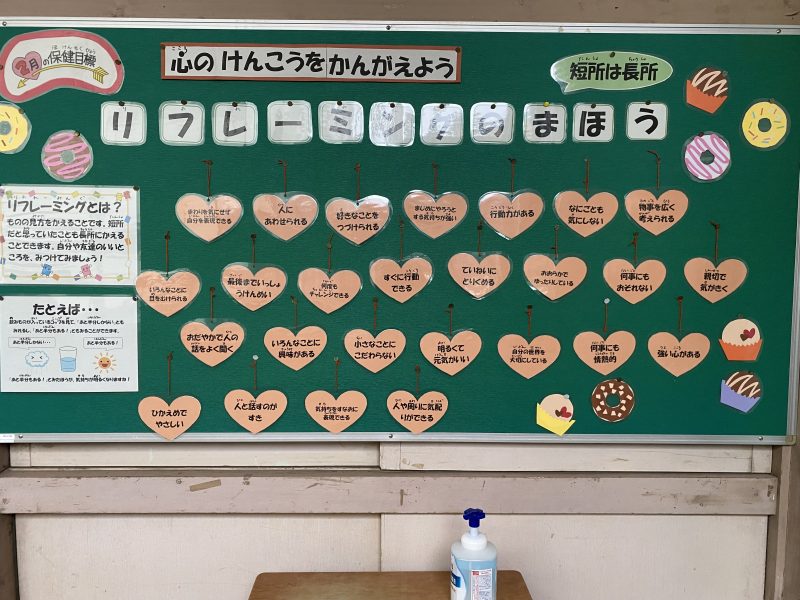 2月の保健目標
心のけんこうをかんがえよう
短所は長所
リフレーミングのまほう
リフレーミングとは?
ものの見方をかえることです。短所
だと思っていたことも長所にかえる
ことできます。自分や友達のいいと
ころを、みつけてみましょう!
たとえば・・・
「あと半分しかない…」
「あと半分もある!」
まわりを気にせず
自分を表現できる
人に
あわせられる
好きなことを
つづけられる
まじめにやろうと
する気持ちが強い
行動力がある
なにごとも
気にしない
物事を広く
考えられる
いろんなことに
目をむけられる
最後までいっしょ
うけんめい
何度も
チャレンジできる
すぐに行動
できる
ていねいに
とりくめる
おおらかで
ゆったりしている
何事にも
おそれない
親切で
気がきく
おだやかで人の
話をよく聞く
いろんなことに
興味がある
小さなことに
こだわらない
明るくて
元気がいい
自分の世界を
大切にしている
何事にも
情熱的
強い心がある
ひかえめで
やさしい
人と話すのが
すき
気持ちをすなおに
表現できる
人や周りに気配
りができる